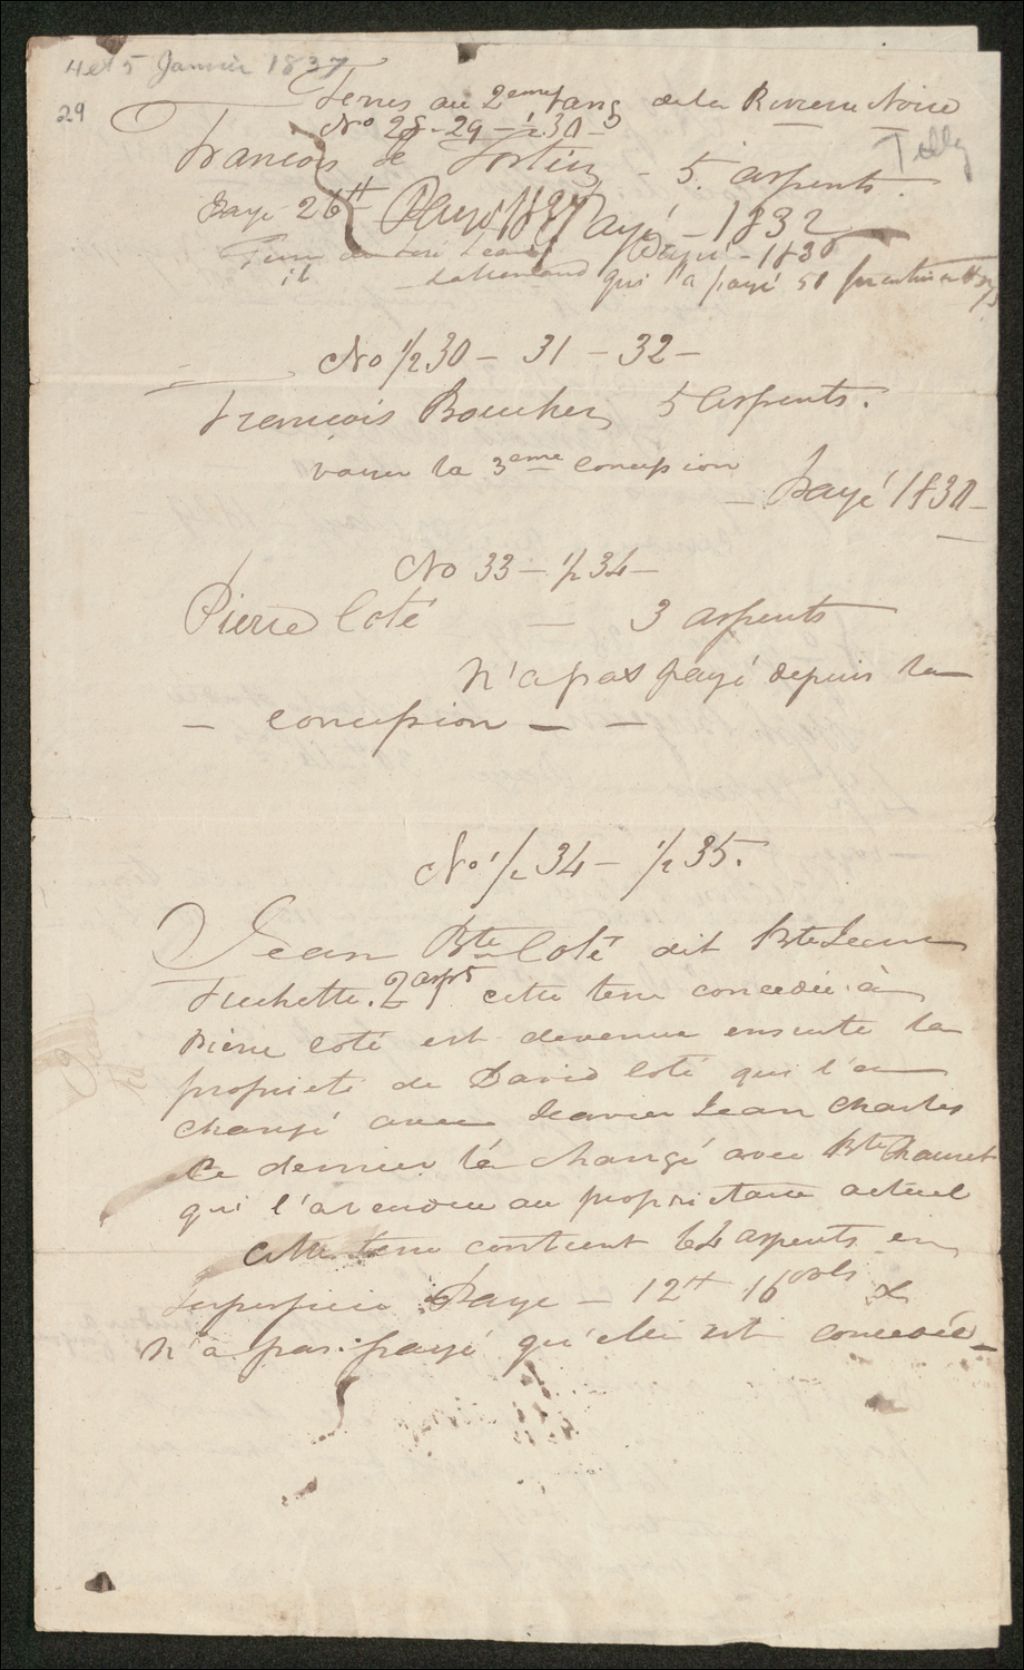 4 et 5 Janvier 1837
29
Terres au 2eme rang de la Riviere Noire
No 28 - 29 - ½ 30 -
Tilly
Francois de Fortier - 5. arpents.
Paye 26 tt Payé 1831 Payé - 1832
Payé - 1830
Terre
il qui l'a payé 51
No ½ 30 - 31 - 32 -
Francois Boucher 5 arpents.
la 3eme concession
- Payé 1830 -
No 33 - ½ 34 -
Pierre Coté - 3 arpents
N'a pas payé depuis la
- concession - -
No ½ 34 - ½ 35.
Jean Bte Coté dit Bte Jean
Fuchette. 2 arpts cette terre concedée à
Pierre coté est devenue ensuite la
proprieté de David Coté qui l'a
changé avec Jean Charles
Ce dernier l'a changé avec Bte Chauret
qui l'a vendue au proprietaire actuel
cette terre contient 64 arpents en
superficie Paye - 12 tt 16 sols &
N'a pas payé qu'elle est concedée -